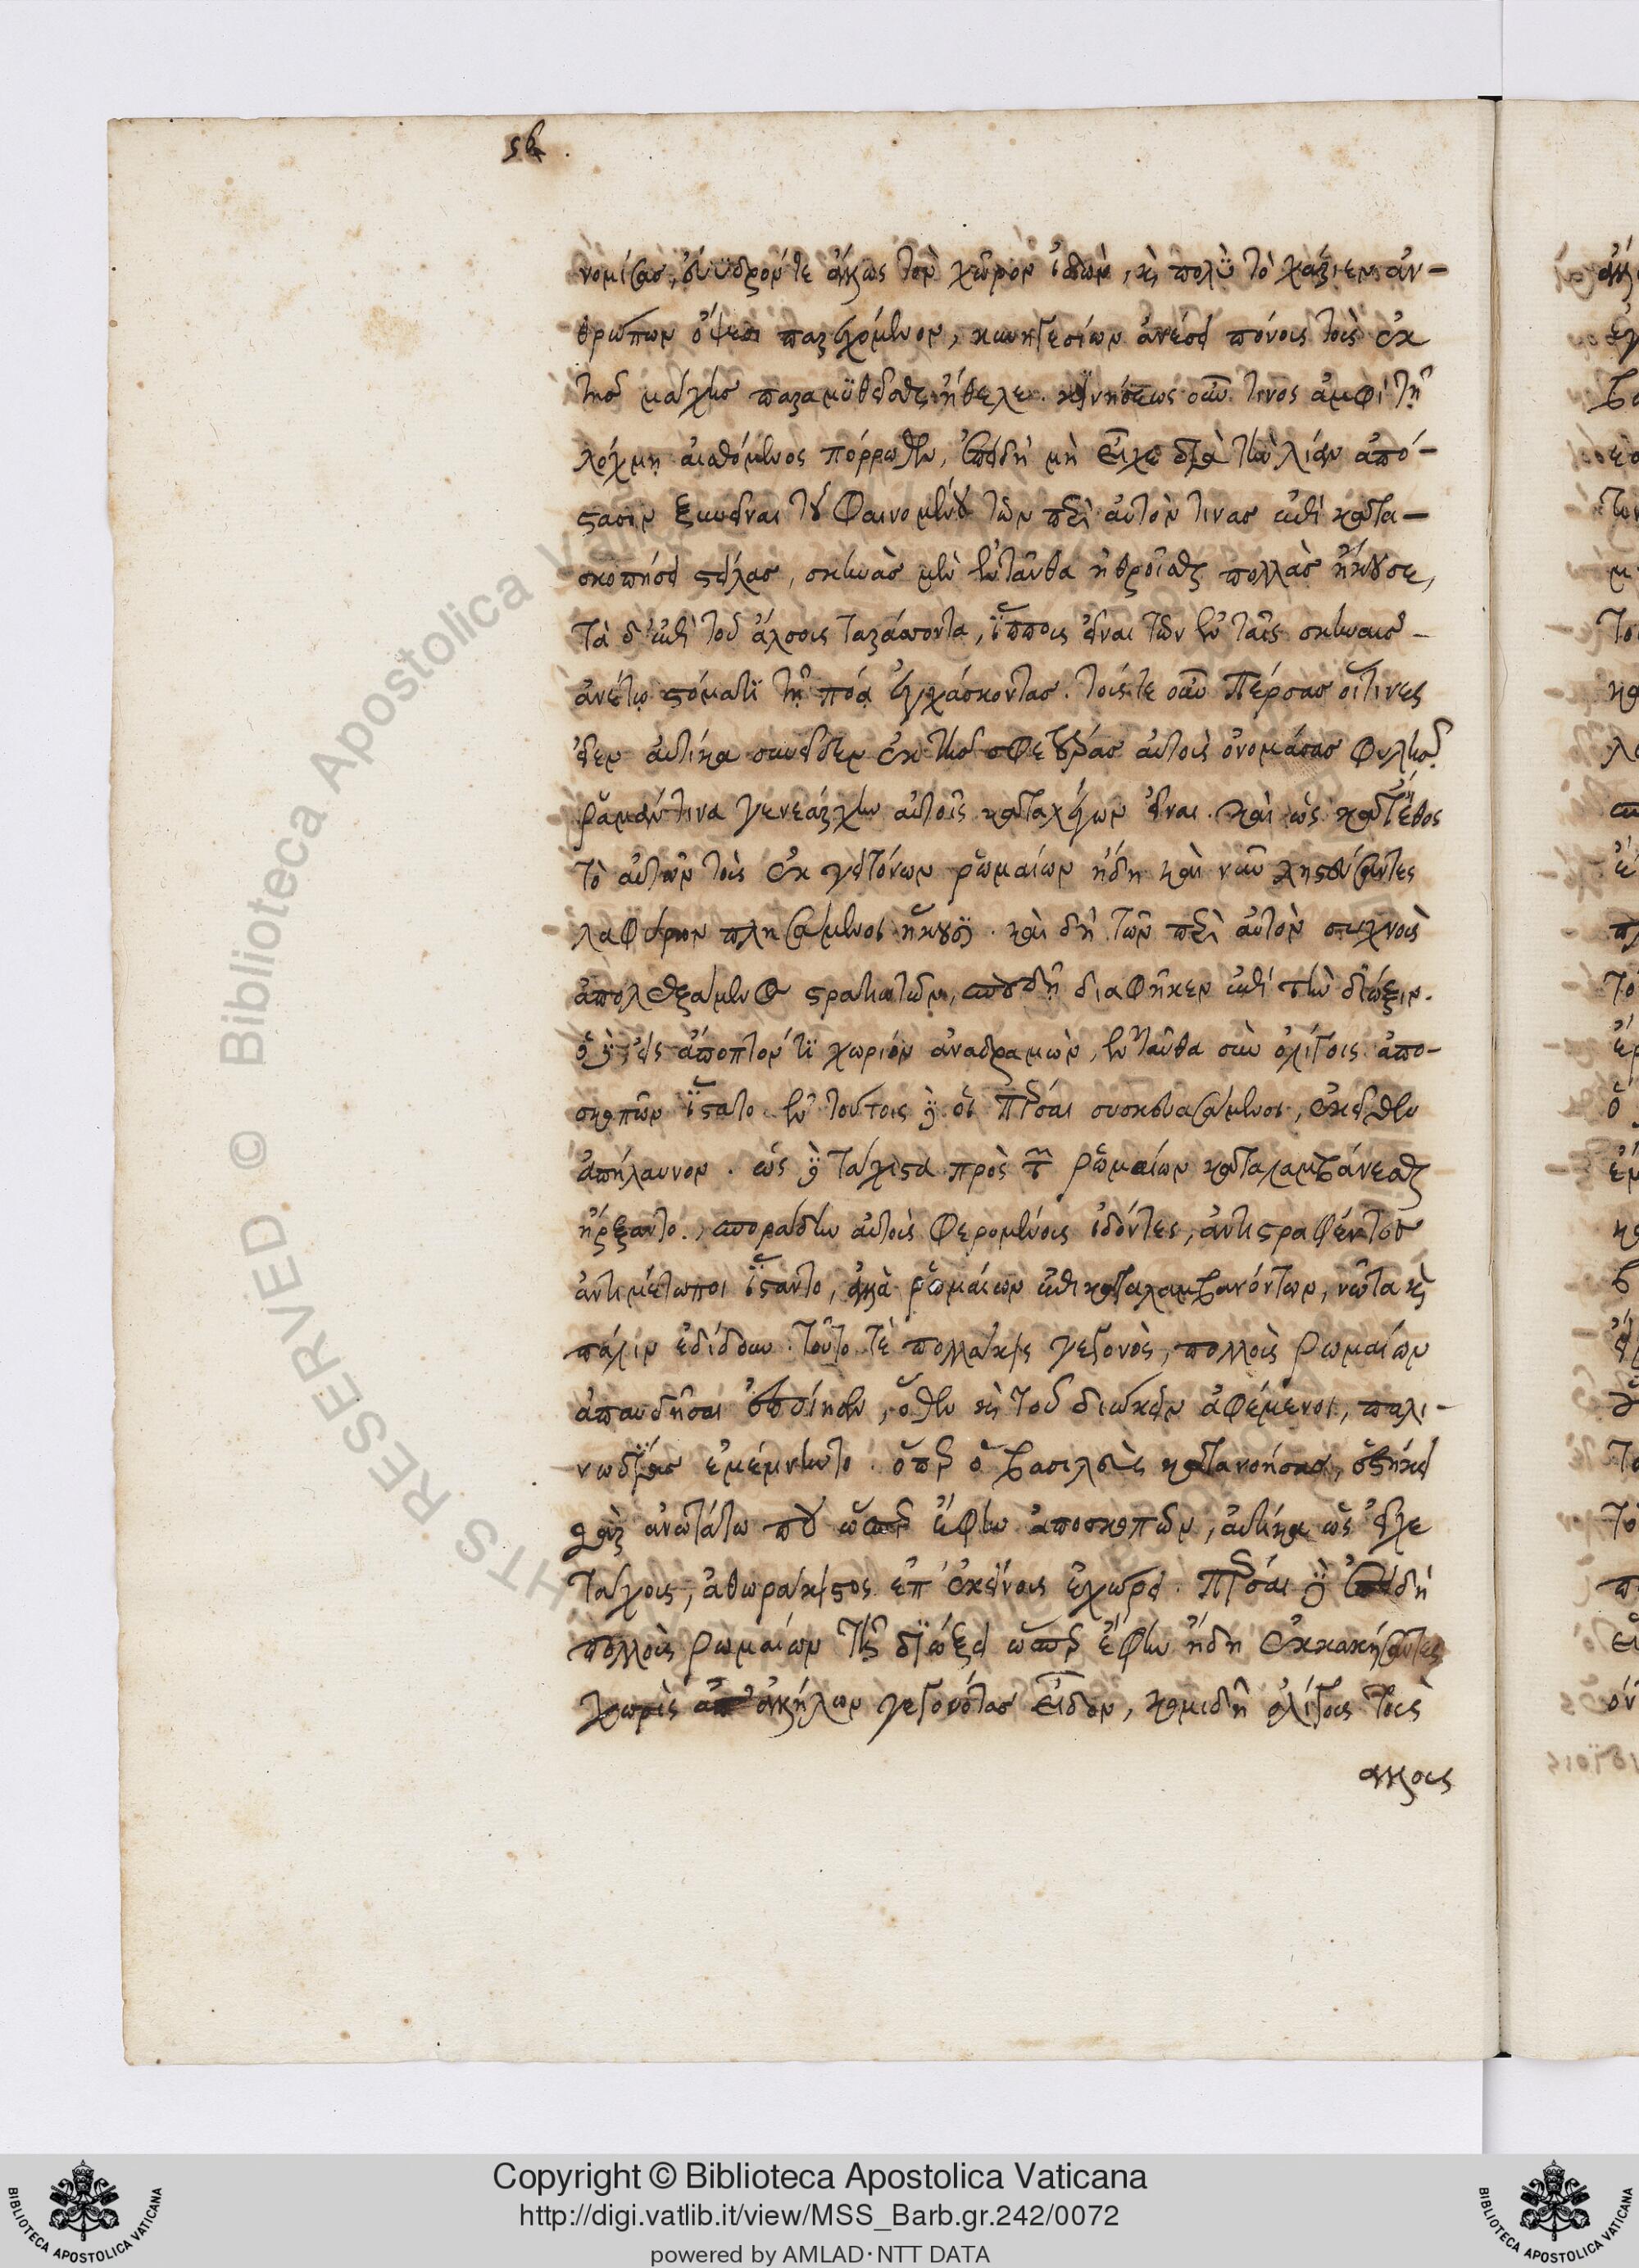 56
νομίσας, εὔυδρόν τε ἄλλως τὸν χῶρον ἰδὼν, καὶ πολὺ τὸ χάριεν ἀν-
θρώπων ὄψεσι παρεχόμενον, κυνηγεσίων ἀνέσει πόνοις τοὺς ἐκ
τῆς μάχης παραμυθεῖσθαι ἤθελε. κινήσεως οὖν τινος ἀμφὶ τῇ
λόχμῃ αἰσθόμενος πόρρωθεν, ἐπειδὴ μὴ εἶχε διὰ τὴν λίαν ἀπό-
στασιν ξυνεῖναι τοῦ φαινομένου τῶν περὶ αὐτὸν τινας ἐπὶ κατα-
σκοπήσει στείλας, σκηνὰς μὲν ἐνταῦθα ἠθροῖσθαι πολλὰς ἤκουσε,
τὰ δ' ἐπὶ τοῦ ἄλσους ταράσσοντα, ἵππους εἶναι τῶν ἐν ταῖς σκηναῖς
ἀνέτῳ στόματι τῇ πόᾳ ἐγχάσκοντας. τούς τε οὖν Πέρσας οἵτινες
εἶεν αὐτίκα συνεῖδεν ἐκ τῆς σφετέρας αὐτοὺς ὀνομάσας φυλῆς
ῥαμάν τινα γενεάρχην αὐτοῖς κατάρχειν εἶναι. καὶ ὡς κατ' ἔθος
τὸ αὐτῶν τοὺς ἐκ γειτόνων ῥωμαίων ἤδη καὶ νῦν λῃστεύσαντες
λαφύρων πλησάμενοι ἥκουσι. καὶ δὴ τῶν περὶ αὐτὸν συχνοὺς
ἀπολεξάμενος στρατιωτῶν, σπουδῇ διαφῆκεν ἐπὶ τὴν δίωξιν.
ὁ δὲ εἰς ἄποπτόν τι χωρίον ἀναδραμὼν, ἐνταῦθα σὺν ὀλίγοις ἀπο-
σκοπῶν ἵστατο. ἐν τούτοις δὲ οἱ Πέρσαι συσκευασάμενοι, ἐκεῖθεν
ἀπήλαυνον. ὡς δὲ τάχιστα πρὸς τῶν ῥωμαίων καταλαμβάνεσθαι
ἤρξαντο, σποράδην αὐτοὺς φερομένους ἰδόντες, ἀντιστραφέντες
ἀντιμέτωποι ἵσταντο, ἀλλὰ ῥωμαίων ἐπικαταλαμβανόντων, νῶτα καὶ
πάλιν ἐδίδουν. τοῦτό τε πολλάκις γεγονὸς, πολλοὺς ῥωμαίων
ἀπαυδῆσαι ἐποίησεν, ὅθεν καὶ τοῦ διώκειν ἀφέμενοι, παλι-
νωδίας ἐμέμνηντο. ὅπερ ὁ βασιλεὺς κατανοήσας, εἱστήκει
γὰρ ἀνωτάτω που ὥσπερ ἔφην ἀποσκοπῶν, αὐτίκα ὡς εἶχε
τάχους, ἀθωράκιστος ἐπ' ἐκείνους ἐχώρει. Πέρσαι δὲ ἐπειδὴ
πολλοὺς ῥωμαίων τῇ διώξει ὥσπερ ἔφην ἤδη ἐκκακήσαντες
χωρὶς ἀπ' ἀλλήλων γεγονότας εἶδον, κομιδῇ ὀλίγους τοὺς
ἄλλους
Copyright © Biblioteca Apostolica Vaticana
http://digi.vatlib.it/view/MSS_Barb.gr.242/0072
powered by AMLAD·NTT DATA